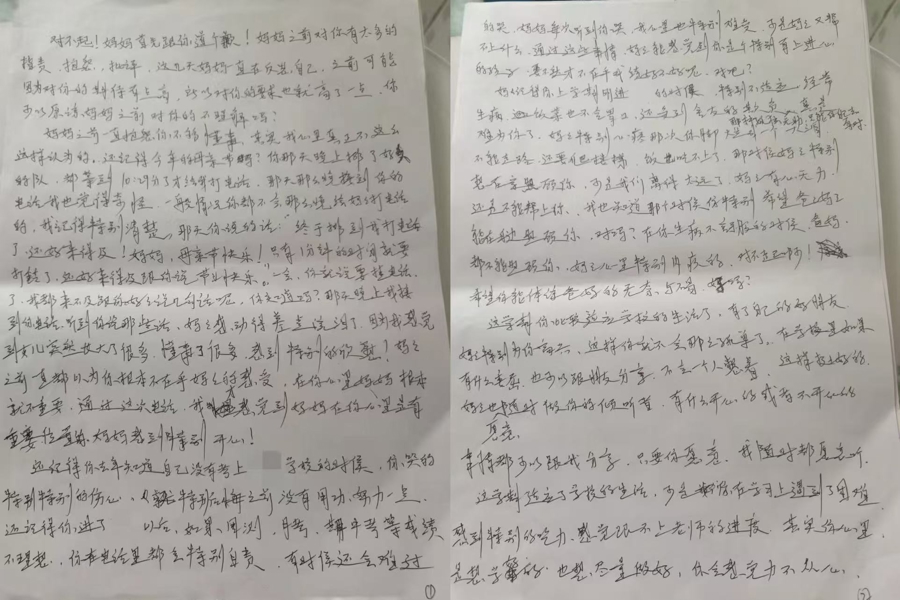 对不起！妈妈首先跟你道个歉！妈妈之前对你有太多的
指责、抱怨、批评，这几天妈妈一直在反思自己，之前可能
因为对你的期待有点高，所以对你的要求也就高了一点，你
可以原谅妈妈之前对你的不理解吗？
妈妈之前一直抱怨你不够懂事，其实我心里真正不这么
这样认为的。还记得今年的母亲节吗？你那天晚上排了好久
的队，都等到10:29分了才给我打电话，那天那么晚接到你的
电话我也觉得奇怪，一般情况你都不会那么晚给妈妈打电话
的，我记得特别清楚，那天你说的话："终于排到我打电话
了，还好来得及！妈妈，母亲节快乐！只有1分钟的时间就要
打铃了，还好来得及跟你说节日快乐。"一会，你就说要挂电话
了，我都来不及跟你好好说几句话呢，你知道吗？那天晚上我接
到你电话，听到你说那些话，妈妈感动得差点流泪了，因为我感觉
到女儿突然长大了很多，懂事了很多，感到特别的欣慰！妈妈
之前一直都以为你根本不在乎妈妈的感受，在你心里妈妈根本
就不重要，通过这次电话，我感觉到妈妈在你心里是有
重要位置的，妈妈感到特别开心！
还记得你去年知道自己没有考上 学校的时候，你哭的
特别特别的伤心，特别后悔之前没有用功，努力一点，
还记得你进了 以后，如果周测、月考、期中考等成绩
不理想，你在电话里都会特别自责，有时候还会难过
①
的哭，妈妈每次听到你哭，我心里也特别难受，可是妈妈又帮
不上什么，通过这些事情，妈妈能感受到你是个特别有上进心
的孩子，要不然才不在乎成绩好不好呢，对吧？
妈妈记得你上学期刚进 的时候，特别不适应，经常
生病，
难为你了，妈妈特别心疼那次你
不能走路，还要爬楼梯，饭也吃不上了，那时候妈妈特别
想在身边照顾你，可是我们离得太远了，妈妈有心无力，
还是不能帮上你，我也知道那个时候你特别希望爸妈
能在身边照顾你，对吗？在你生病不舒服的时候，爸妈
都不能照顾你，妈妈心里特别内疚的，对不起啊！
希望你能体谅爸妈的无奈，与不易，好吗？
这学期你比较适应学校的生活了，有了自己的好朋友，
妈妈特别为你高兴，这样你就不会那么孤单了，在学校里如果
有什么委屈，也可以跟朋友分享，不会一个人憋着，这样挺好的。
妈妈也随时做你的倾听者，有什么开心的或者不开心的
愿意，
事情都可以跟我分享，只要你愿意，我随时都愿意听。
这学期适应了学校的生活，可是你在学习上遇到了困难，
感到特别的吃力，感觉跟不上老师的进度，其实你心里
是想学的，也想尽量做好，你会感觉力不从心，
②